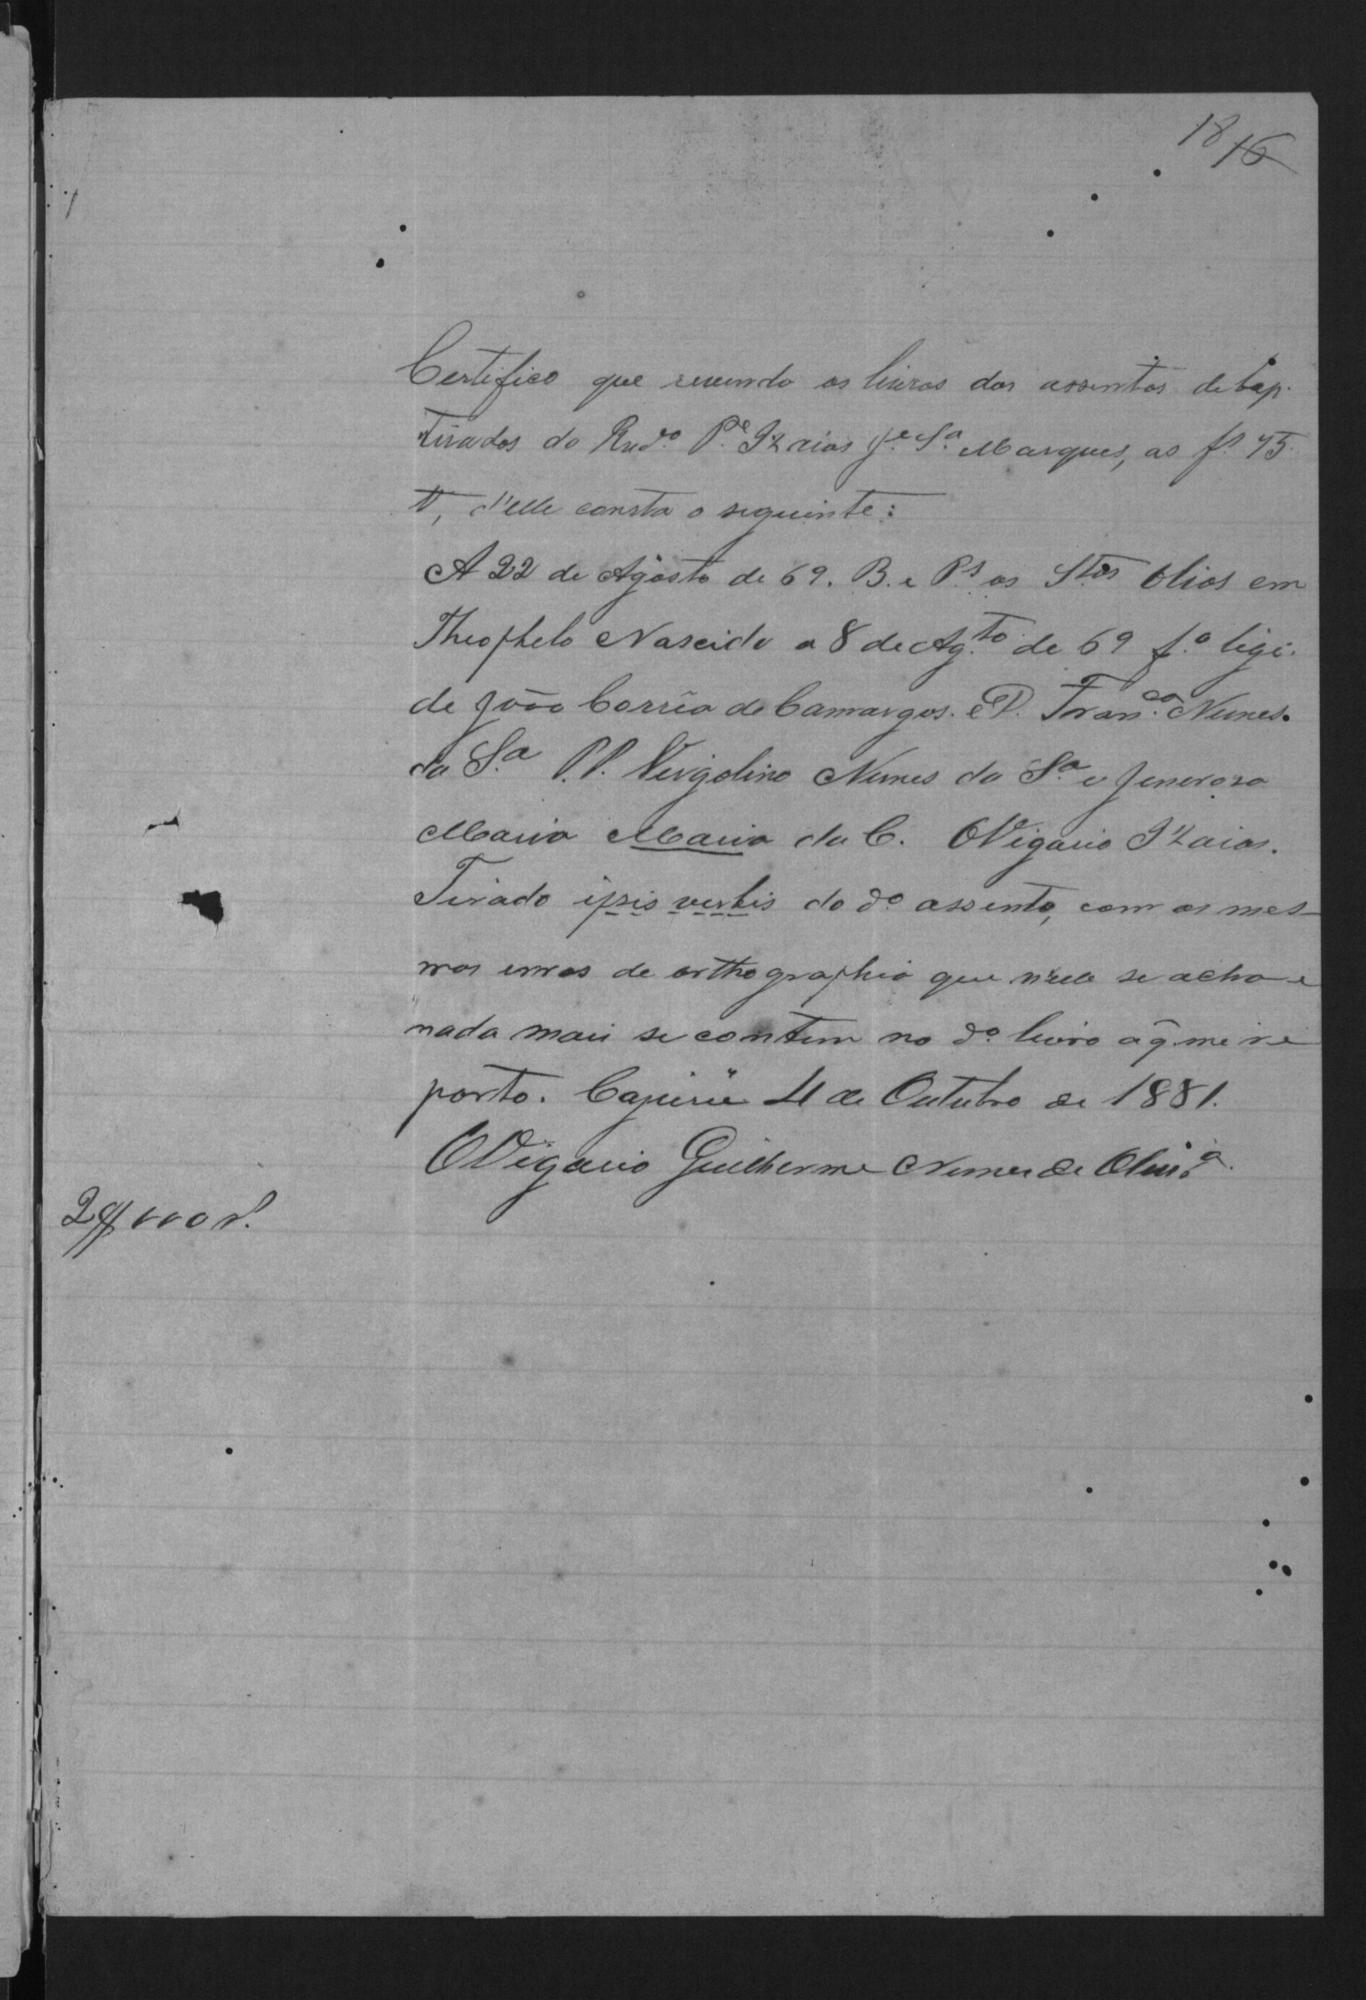 18 16
Certifico que revendo os livros dos assentos de bap-
tisados do Rvd.º P.e Izaias J.e S.a Marques, as f.s 45
v, d'elle consta o seguinte:
A 22 de Agosto de 69. B. e P.s os S.tos Olios em
Theophelo Nascido a 8 de Ag.to de 69 f.º ligi.
de João Corrêa de Camargos. e D. Fran.ca Nunes.
da S.a P.P. Virgolino Nunes da S.a e Jeneroza
Maria Maria da C. O Vigario Izaias.
Tirado ipsis verbis do dº assento, com os mes-
mos erros de orthographia que n'elle se acha e
nada mais se contem no dº livro a q̃ me re
porto. Cajurú 4 de Outubro de 1881.
O Vigario Guilherme Nunes de Oliv.a
2$000 r.s